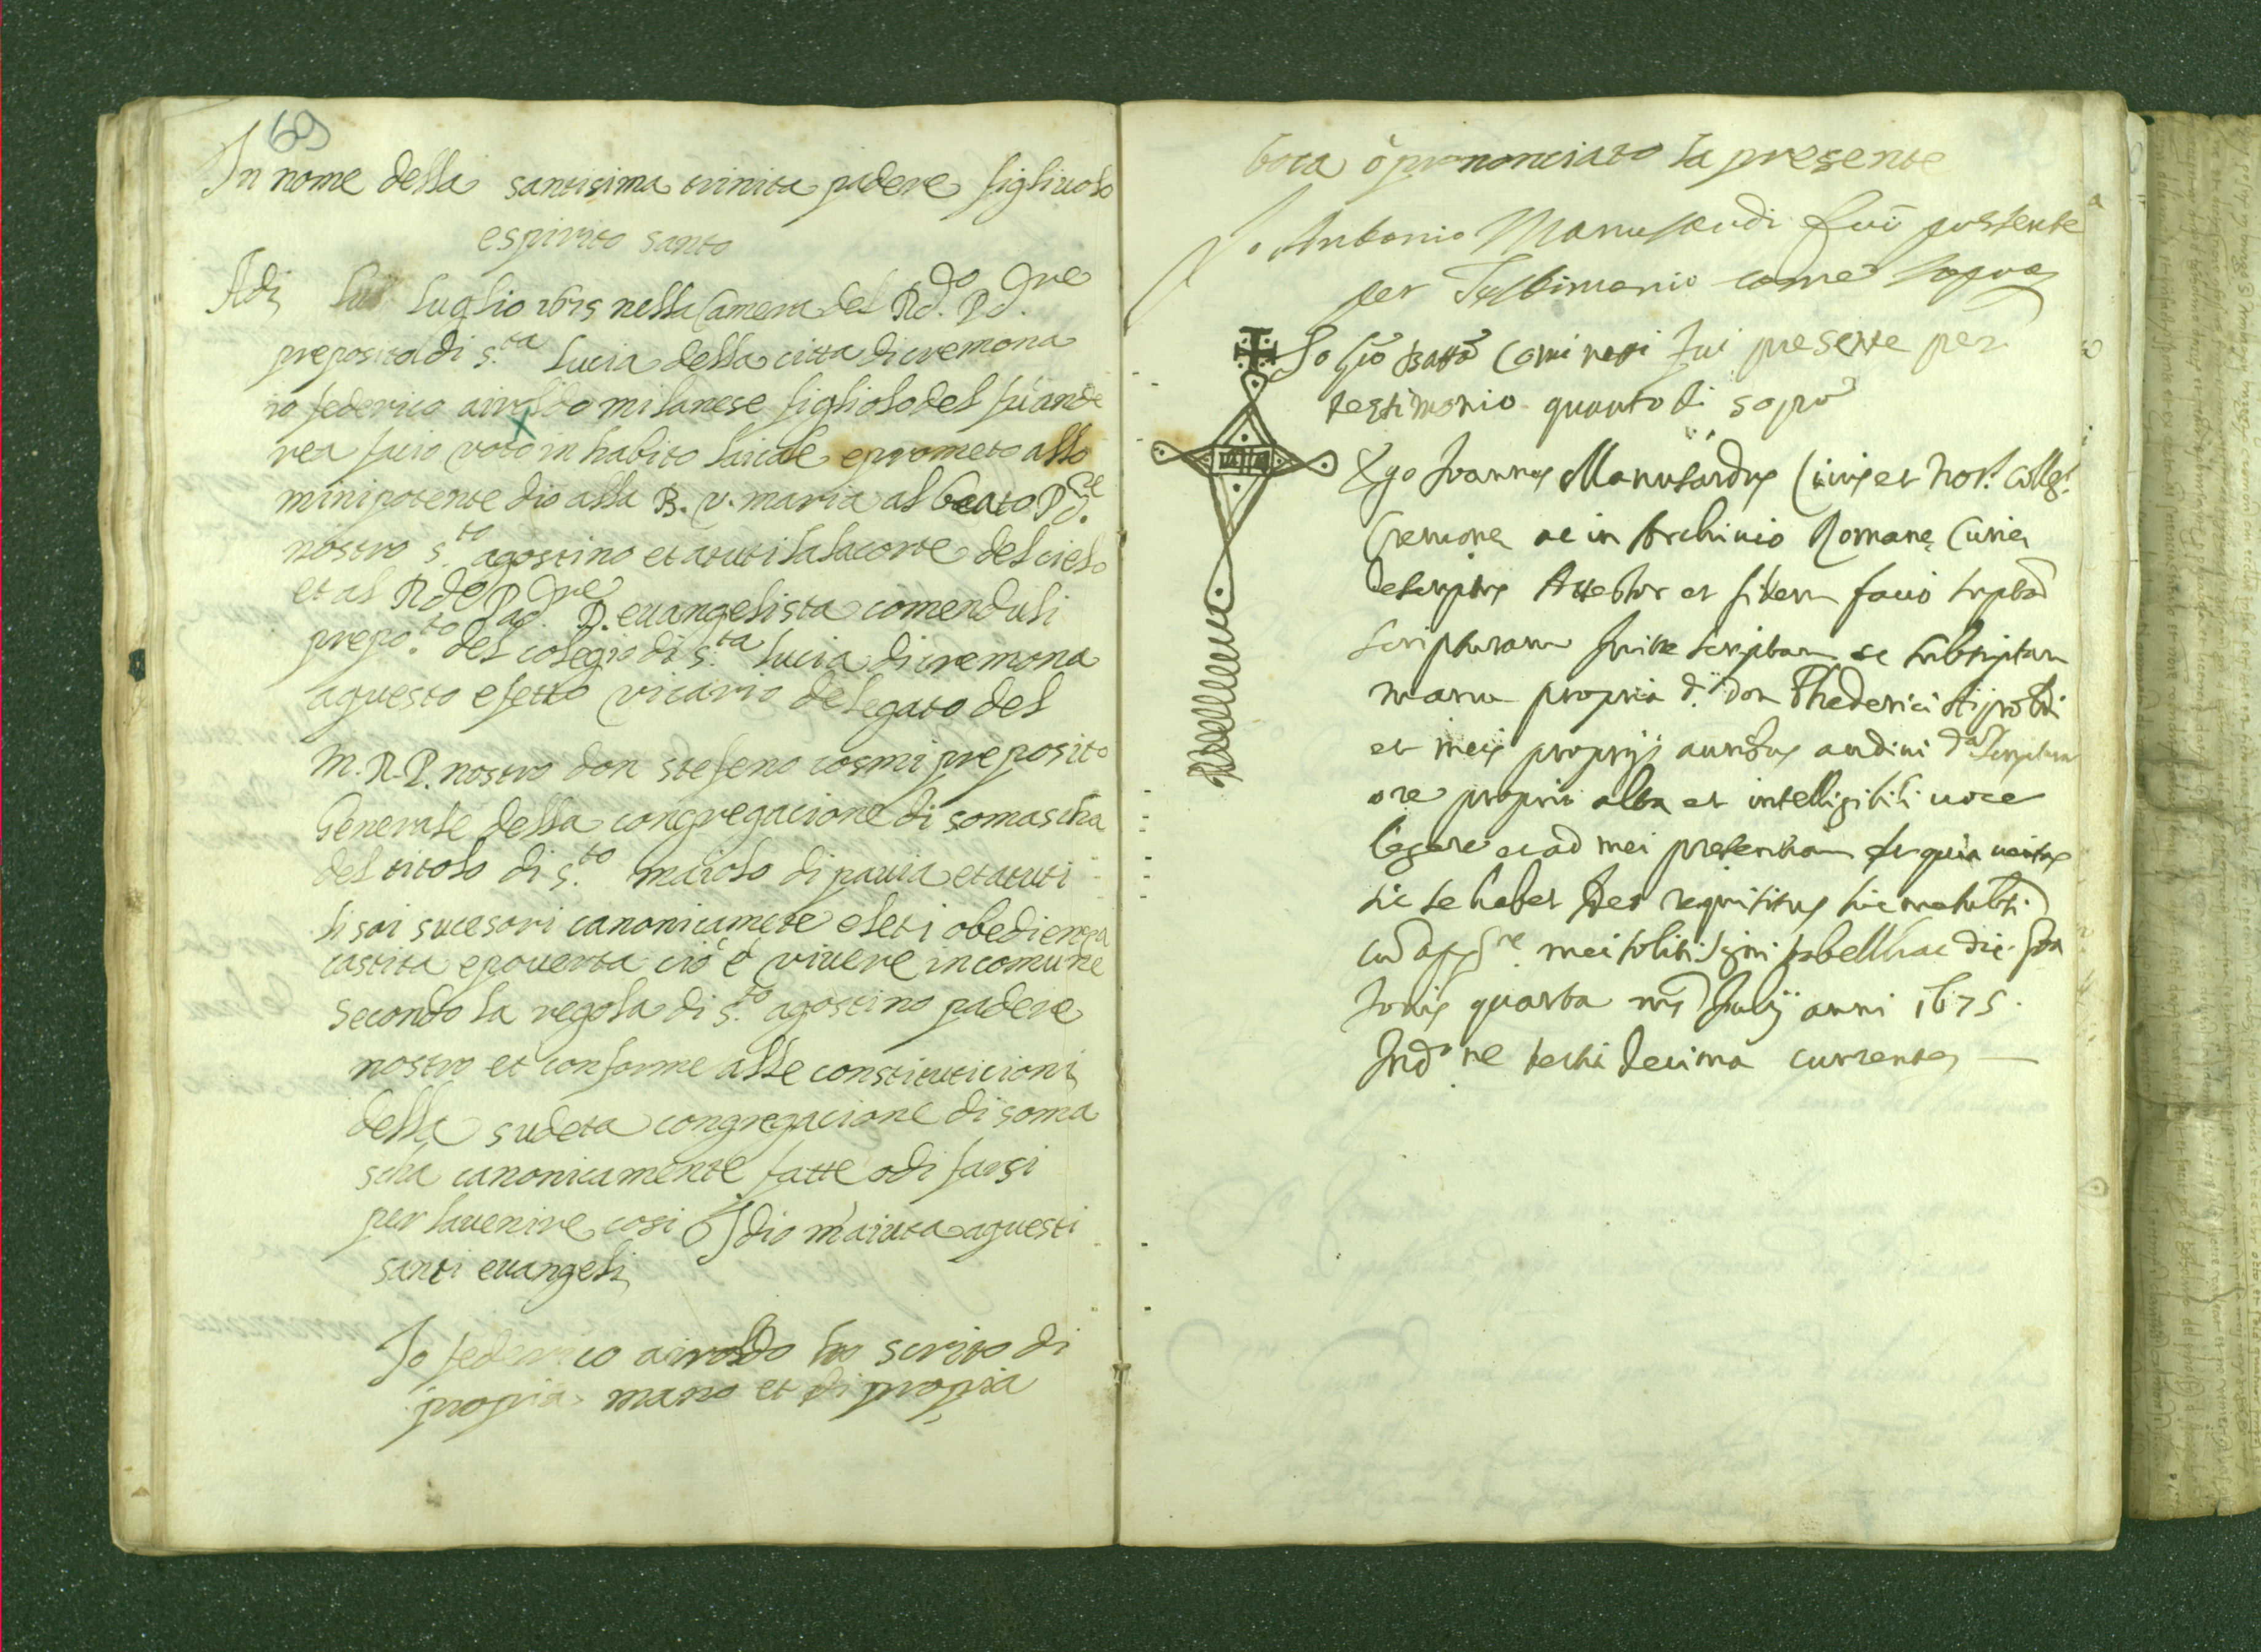 69
In nome della santisima trinita padere figliuolo
espirito santo
Adi luglio 1675 nella Camera del Rdo. Pd.re
preposito di s.ta Lucia della citta di cremona
io federico airoldo milanese figliolo del fu ande
rea facio voto in habito laicale e prometo allo
minipotente dio alla B. v. maria al beato Pd.re
nostro s.to agostino et atuti la la corte del cielo
et al Rdo Pad.re D. euangelista comenduli
prepo.to del colegio di s.ta lucia di cremona
aquesto efetto vicario delegato del
M. R. P. nostro don stefeno cosmi preposito
Generale della congregacione di somascha
del titolo di s.to maiolo di pauia et atuti
li soi sucesori canonicamete eleti obediença
castita e pouerta ciò è viuere in comune
secondo la regola di s.to agostino padere
nostro et conforme alle constituticioni
della sudeta congregacione di soma
scha canonicamente fatte o di farsi
per lauenire cosi Idio m'aiuta aquesti
santi euangeli
Io federico airoldo ho scrito di
propria mano et di propia
boca ò prononciato la presente
Io Antonio Manusardi fui presente
per Testimonio come sopra
Io Gio Batta Cominetti fui presente per
testimonio quanto di sopra
Ego Ioannes Manusardus Civis et Not. Colleg.
Cremone ac in Archiuio Romane Curie
descriptus Attestor et fidem facio suptam
scripturam fuisse scriptam ac subscriptam
manu propria d. don Phederici Aijroldi
et meis proprijs auribus audiui d.a scriptura
ore proprio alta et intelligibili uoce
legere ac ad mei presentiam et quia ueritas
sic se habet ideo requisitus hic me subs.
cum app.ne mei soliti signi tabell. hac die
Iouis quarta ms Iulij anni 1675.
Ind.ne tertia decima currente